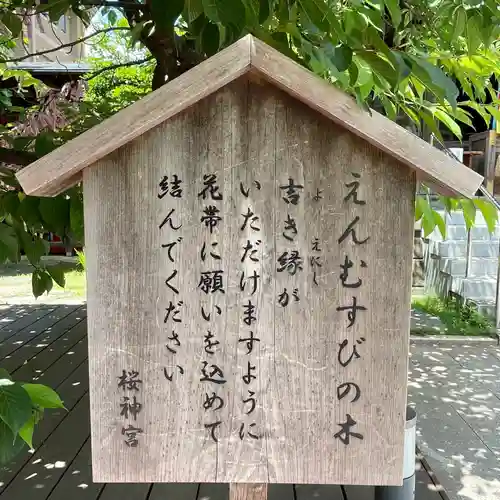 えんむすびの木
吉き縁が
よ えにし
いただけますように
花帯に願いを込めて
結んでください
桜神宮